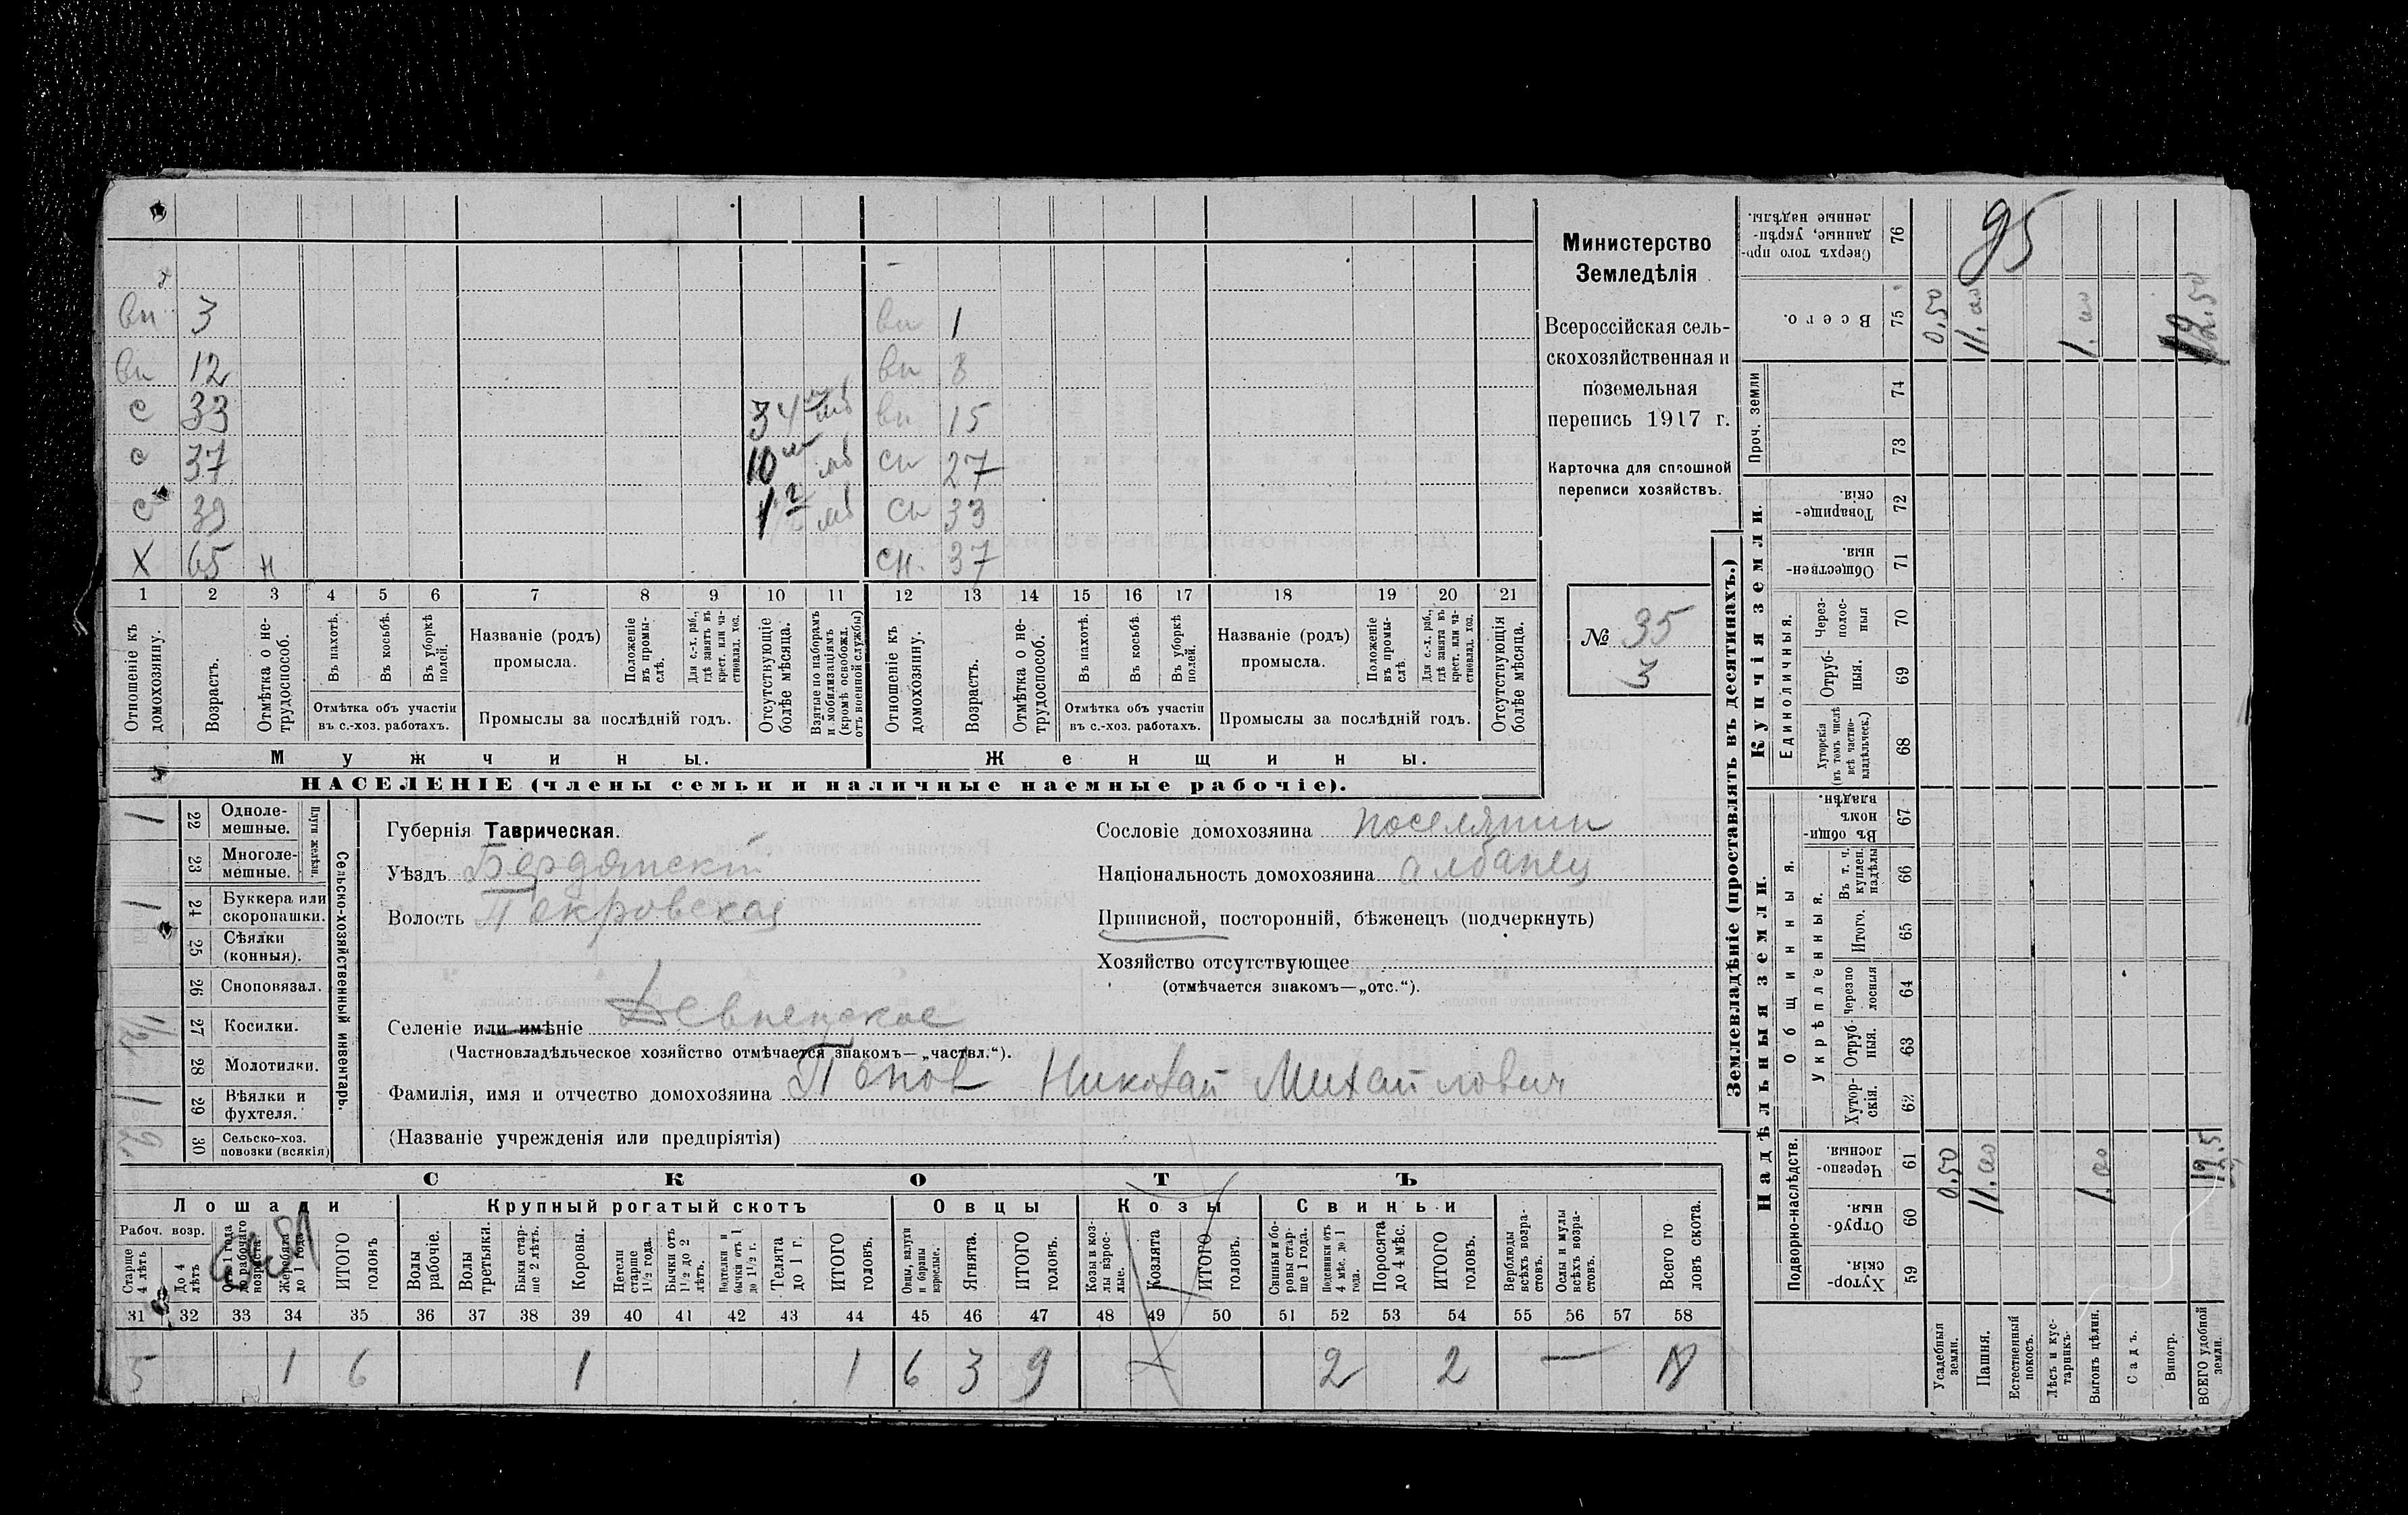 вн 3 вн 1
вн 12 вн 8
с 33 вн 15
с 37 10 сн 27
с 39 сн 33
Х 65 н сн. 37
1 2 3 4 5 6 7 8 9 10 11 12 13 14 15 16 17 18 19 20 21
Отношеніе къ домохозяину.
Возрастъ.
Отмѣтка о не-трудоспособ.
Въ пахотѣ.
Въ косьбѣ.
Въ уборкѣ полей.
Отмѣтка объ участіи
въ с.-хоз. работахъ.
Названіе (родъ)
промысла.
Положеніе въ промы-слѣ.
Для с.-х. раб., гдѣ занятъ въ крест. или ча-стновлад. хоз.
Промыслы за послѣдній годъ.
Отсутствующіе болѣе мѣсяца.
Взятые по наборамъ и мобилизаціямъ (кромѣ освобожд. отъ военной службы)
Отношеніе къ домохозяину.
Возрастъ.
Отмѣтка о не-трудоспособ.
Въ пахотѣ.
Въ косьбѣ.
Въ уборкѣ полей.
Отмѣтка объ участіи
въ с.-хоз. работахъ.
Названіе (родъ)
промысла.
Положеніе въ промы-слѣ
Для с.-х. раб., гдѣ занята въ крест. или ча-стновлад. хоз.
Промыслы за послѣдній годъ.
Отсутствующія болѣе мѣсяца.
Мужчины. Женщины.
НАСЕЛЕНІЕ (члены семьи и наличные наемные рабочіе).
Министерство
Земледѣлія
Всероссійская сель-
скохозяйственная и
поземельная
перепись 1917 г.
Карточка для сплошной
переписи хозяйствъ.
№ 35
3
Сельско-хозяйственный инвентарь.
Плуги желѣзн.
1 22 Одноле-мешные.
23 Многоле-мешные.
1 24 Буккера или скоропашки.
25 Сѣялки (конныя).
26 Сноповязал.
27 Косилки.
28 Молотилки.
1 29 Вѣялки и фухтеля.
30 Сельско-хоз. повозки (всякія)
Губернія Таврическая.
Уѣздъ Бердянскій
Волость Покровская
Селеніе или имѣніе Девненское
(Частновладѣльческое хозяйство отмѣчается знакомъ—„частвл.“).
Фамилія, имя и отчество домохозяина Попов Николай Михайлович
(Названіе учрежденія или предпріятія)
Сословіе домохозяина поселянин
Національность домохозяина албанец
Приписной, посторонній, бѣженецъ (подчеркнуть)
Хозяйство отсутствующее
(отмѣчается знакомъ—„отс.“).
СКОТЪ
Лошади Крупный рогатый скотъ Овцы Козы Свиньи
Рабоч. возр.
Старше 4 лѣтъ
До 4 лѣтъ
Отъ 1 года до рабочаго возраста
Жеребята до 1 года
ИТОГО головъ
Волы рабочіе.
Волы третьяки.
Быки стар-ше 2 лѣтъ.
Коровы.
Нетели старше 1½ года.
Бычки отъ 1½ до 2 лѣтъ.
Подтелки и бычки отъ 1 до 1½ г.
Телята до 1 г.
ИТОГО головъ.
Овцы, валухи и бараны взрослые.
Ягнята.
ИТОГО головъ.
Козы и коз-лы взрос-лые.
Козлята
ИТОГО головъ.
Свиньи и бо-ровы стар-ше 1 года.
Подсвинки отъ 4 мѣс. до 1 года.
Поросята до 4 мѣс.
ИТОГО головъ.
Верблюды всѣхъ возра-стовъ.
Ослы и мулы всѣхъ возра-стовъ.
Всего го ловъ скота.
31 32 33 34 35 36 37 38 39 40 41 42 43 44 45 46 47 48 49 50 51 52 53 54 55 56 57 58
5 1 6 1 1 6 3 9 2 2 — 18
Землевладѣніе (проставлять въ десятинахъ.)
Надѣльныя земли. Купчія земли. Проч. земли
Подворно-наслѣдств.
Общинныя.
Укрѣпленныя.
Единоличныя.
Хутор-скія. 59
Отруб-ныя. 60
Черезпо-лосныя. 61
Хутор-скія. 62
Отруб-ныя. 63
Черезпо лосныя 64
Итого. 65
Въ т. ч. куплен. надѣлы 66
Въ общин-номъ владѣн. 67
Хуторскія (въ томъ числѣ всѣ частно-владѣльческ.) 68
Отруб-ныя. 69
Через-полос-ныя 70
Обществен-ныя. 71
Товарище-скія. 72
73
74
Всего. 75
Сверхъ того про-данные, укрѣп-ленные надѣлы. 76
95
Усадебныя земли. 0.50 0.50
Пашня. 11.00 11.00
Естественный покосъ.
Лѣсъ и кус-тарникъ.
Выгонъ цѣлин. 1.00 1.00
Садъ.
Виногр.
ВСЕГО удобной земли. 12.5 12.50